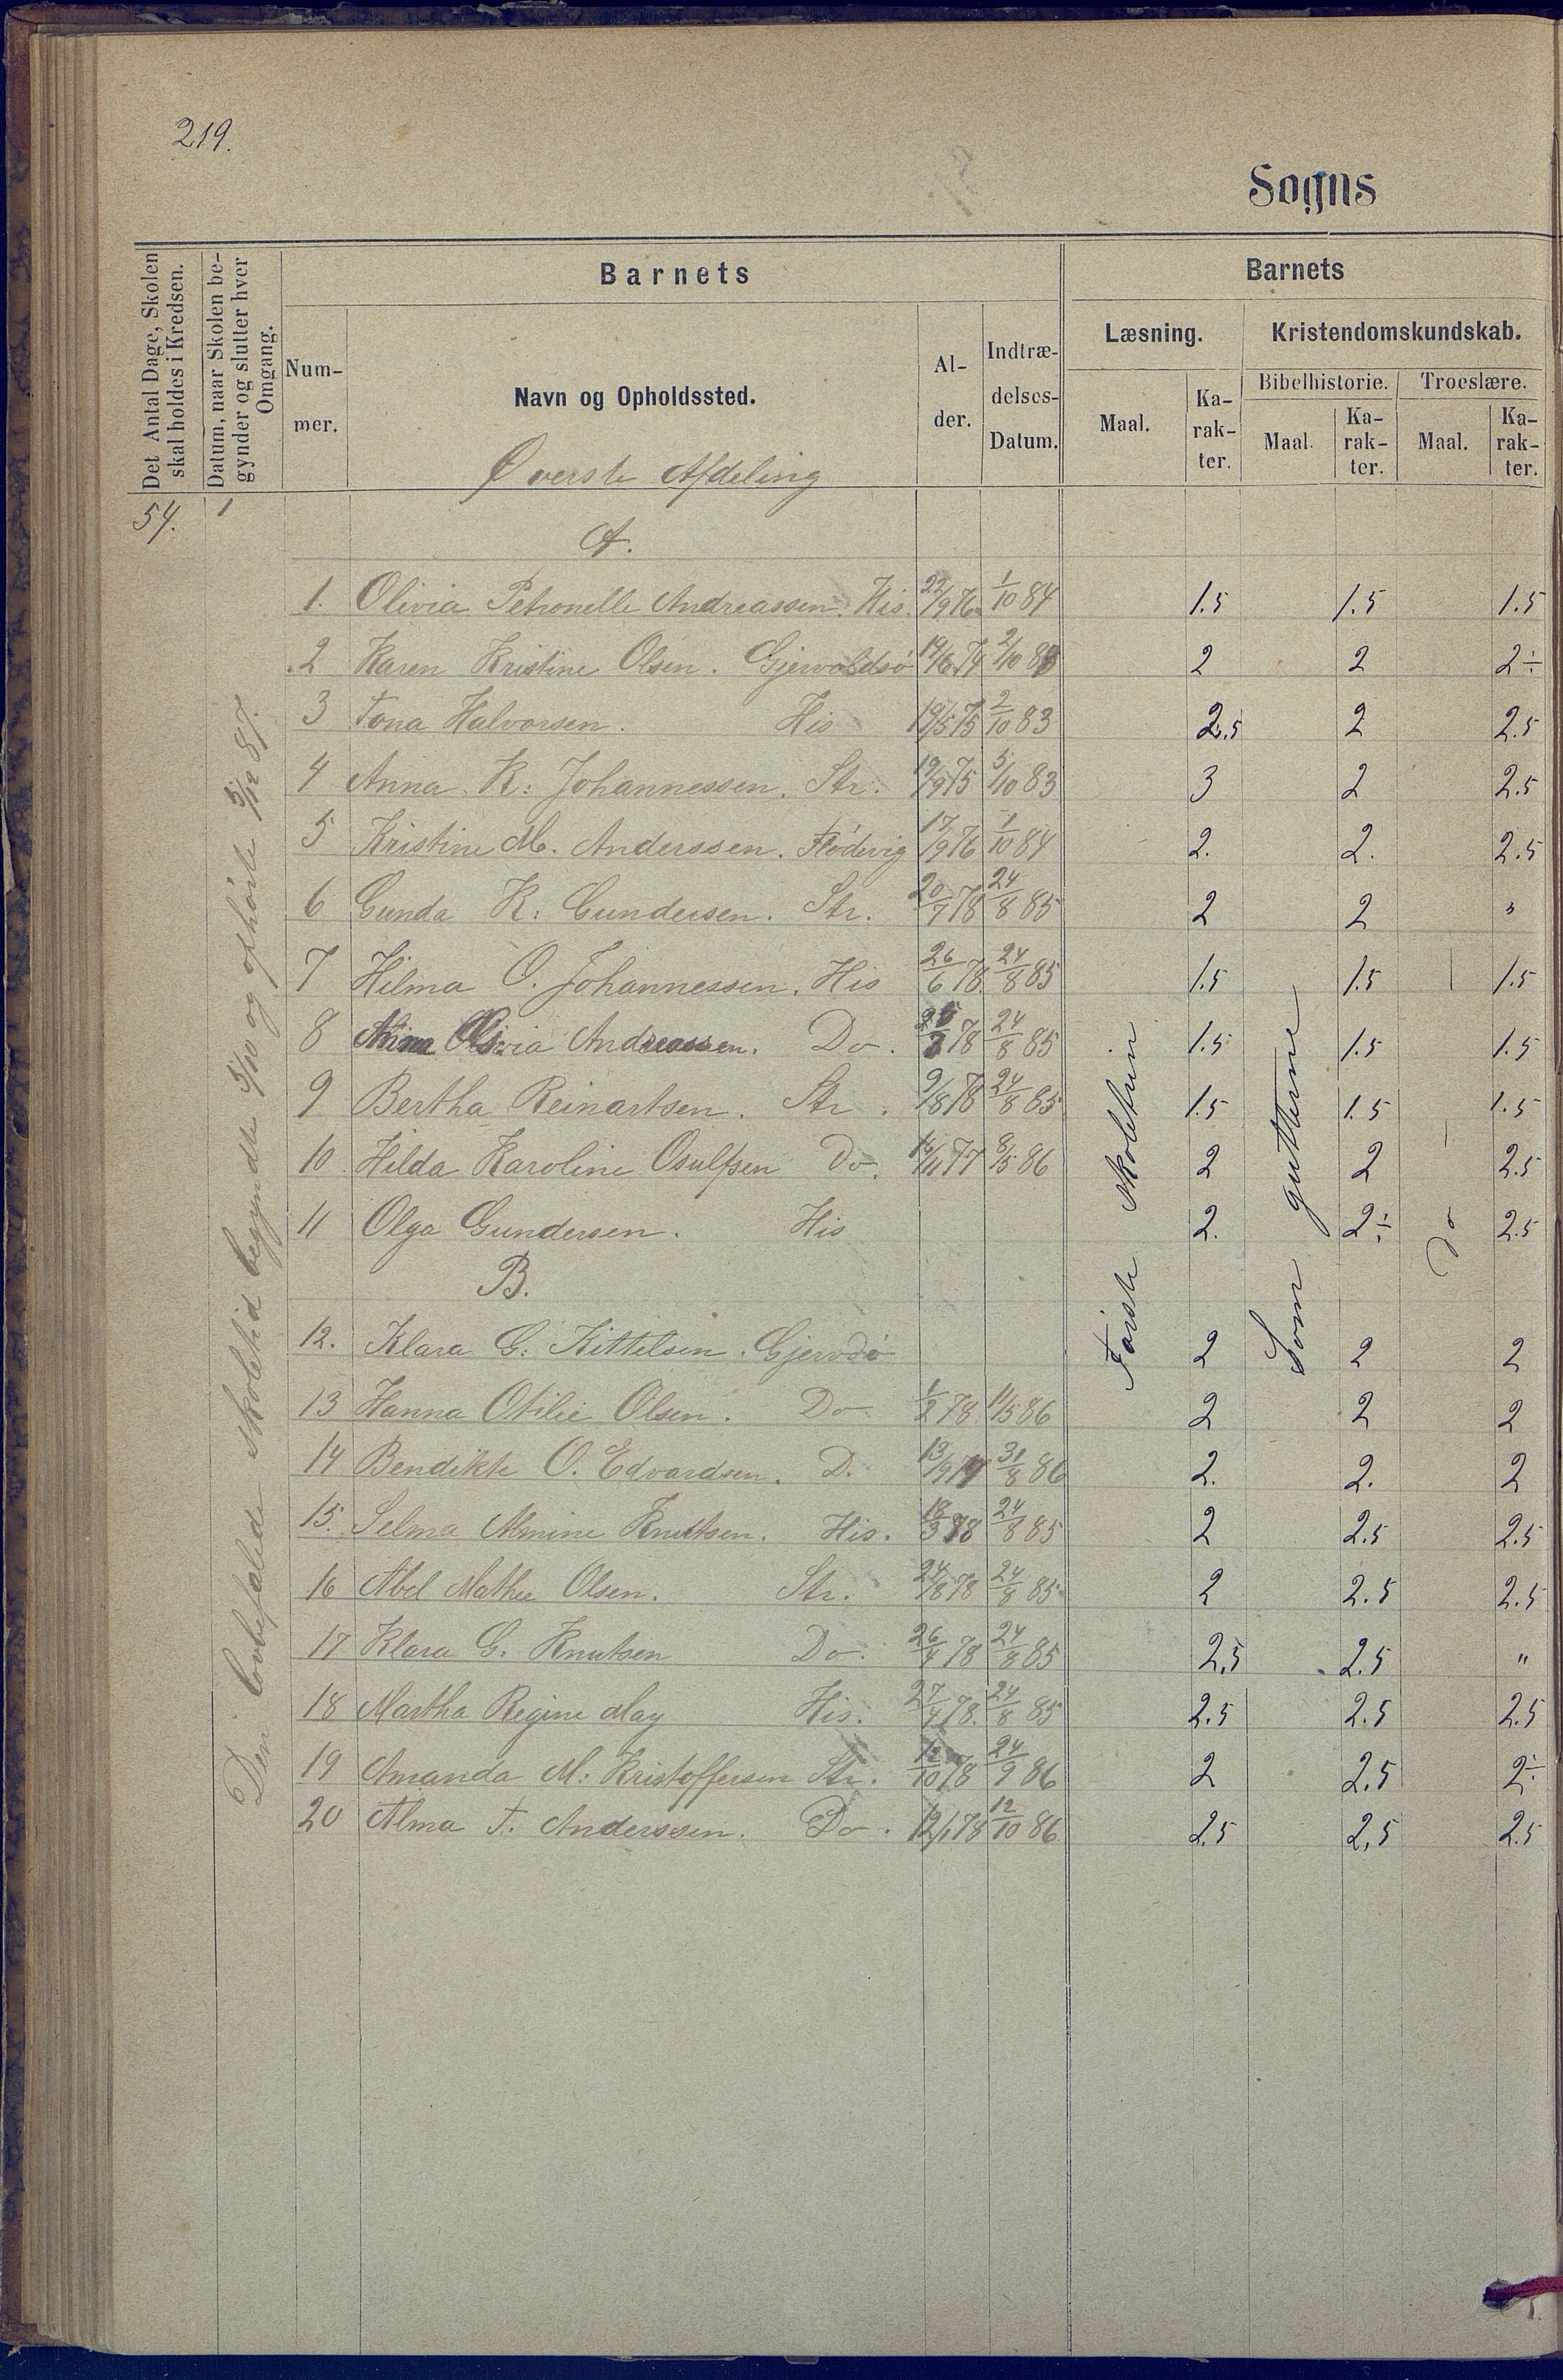 219.
Sogns
Det Antal Dage, Skolen skal holdes i Kredsen.
Datum, naar Skolen begynder og slutter hver Omgang.
Barnets
Barnets
Num-mer.
Navn og Opholdssted.
Al-der.
Indtræ-delses-Datum.
Læsning.
Kristendomskundskab.
Maal.
Ka-rak-ter.
Bibelhistorie.
Troeslære.
Maal.
Ka-rak-ter.
Maal.
Ka-rak-ter.
Øverste Afdeling
54.
A.
Den lovbefalede skoletid begyndte 3/10 og ophørte 3/12 87.
1. Olivia Petronelle Andreassen. His. 22/9 76 1/10 84 1.5 1.5 1.5
2 Karen Kristine Olsen. Gjervoldsø 19/6 74 2/10 83 2 2 2÷
3 Tona Halvorsen. His 19/5 75 2/10 83 2.5 2 2.5
4 Anna K: Johannessen. Str. 19/9 75 5/10 83 3 2 2.5
5 Kristine M. Anderssen. Flødevig 17/9 76 1/10 84 2. 2. 2.5
6 Gunda K: Gundersen. Str. 20/9 78 24/8 85 2 2 "
7 Hilma O. Johannessen. His 26/6 78. 24/8 85 1.5 1.5 1.5
8 Olivia Andreassen. Do. 78 24/8 85 1.5 1.5 1.5
9 Bertha Reinartsen. Str. 9/8 78 24/8 85 1.5 1.5 1.5
10 Hilda Karoline Osulfsen Do. 14/11 77 8/5 86 2 2 2.5
11 Olga Gundersen. His 2. 2÷ 2.5
Første skoletrin
Som gutterne
Do
B.
12. Klara G: Kittelsen. Gjervdø 2 2 2
13 Hanna Otilie Olsen. Do 1/2 78 11/5 86 2 2 2
14 Bendikte O. Edvardsen. D. 13/9 31/8 86 2. 2. 2
15. Selma Almine Knutsen. His. 18/3 78 24/8 85 2 2.5 2.5
16 Abel Mathee Olsen. Str. 24/8 78 24/8 85 2 2.5 2.5
17 Klara G. Knutsen Do. 26/4 78 24/8 85 2,5 2.5 "
18 Martha Regine May His. 27/4 78. 24/8 85 2.5 2.5 2.5
19 Amanda M: Kristoffersen Str. 12/10 78 24/9 86 2 2.5 2÷
20 Alma T. Anderssen. Do. 12/1 78 12/10 86 2.5 2,5 2.5